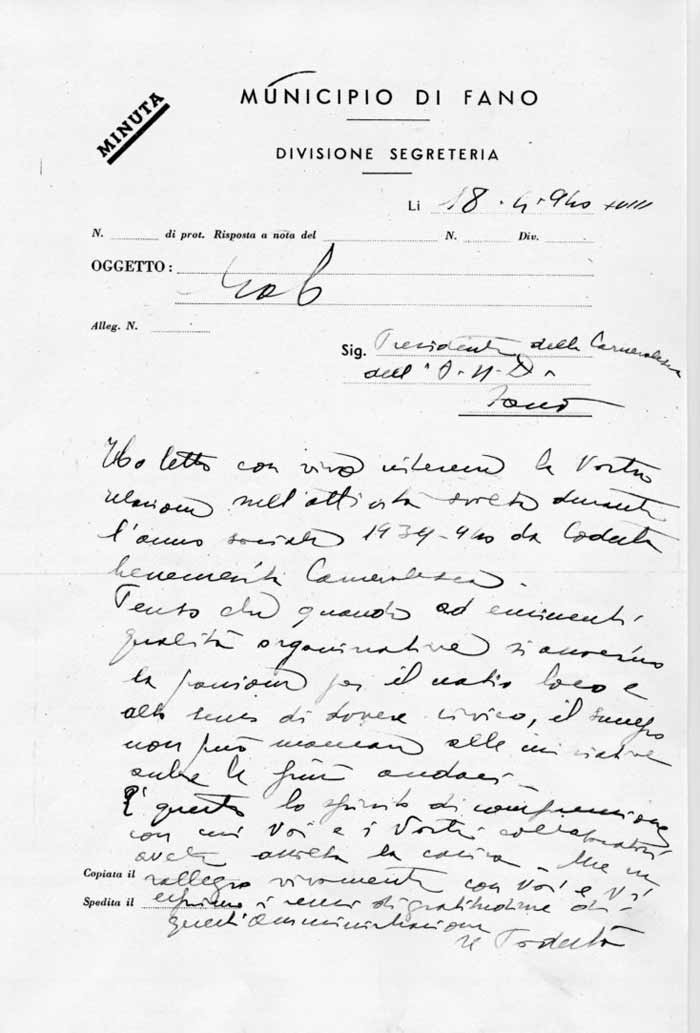 MINUTA
MUNICIPIO DI FANO
DIVISIONE SEGRETERIA
Li 18 - 4 - 940 XVIII
N. di prot. Risposta a nota del N. Div.
OGGETTO:
Alleg. N.
Sig. Presidente della Carnevalesca
dell'O.N.D.
Fano
Ho letto con vivo interesse la Vostra
relazione sull'attività svolta durante
l'anno sociale 1939-940 da Codesta
benemerita Carnevalesca.
Penso che quando ad eminenti
qualità organizzative si associno
la passione per il natio loco e
alto senso di dovere civico, il successo
non può mancare alle iniziative
anche le più audaci.
E' questo lo spirito di comprensione
con cui Voi e i Vostri collaboratori
avete assolta la carica. Me ne
Copiata il rallegro vivamente con Voi e Vi
Spedita il esprimo i sensi di gratitudine di
quest'Amministrazione
Il Podestà